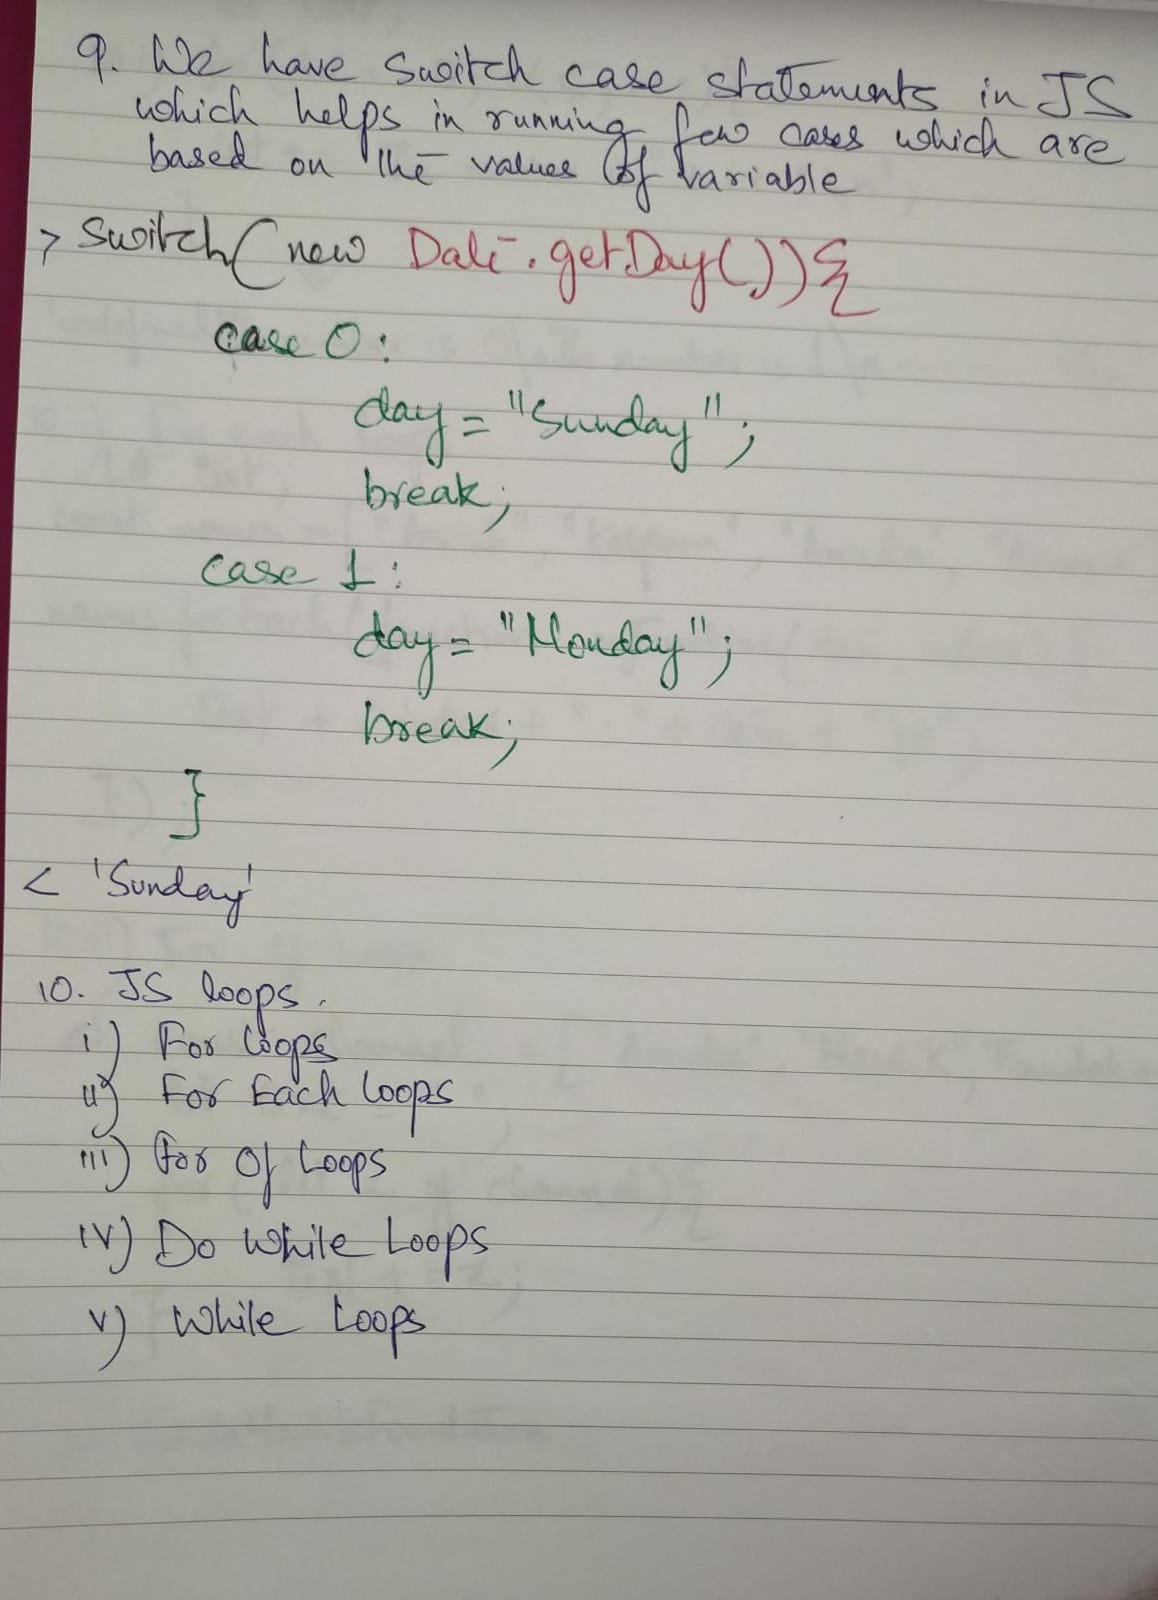 9. We have Switch case statements in JS
which helps in running few cases which are
based on the values of variable
> Switch(new Date.getDay()){
case 0:
day = "Sunday";
break;
case 1:
day = "Monday";
break;
}
< 'Sunday'
10. JS loops.
i) For loops
ii) For Each loops
iii) For Of Loops
iv) Do While Loops
v) While Loops